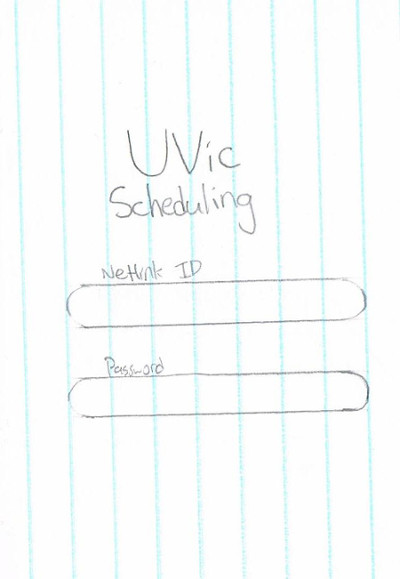 UVic
Scheduling
Netlink ID
Password